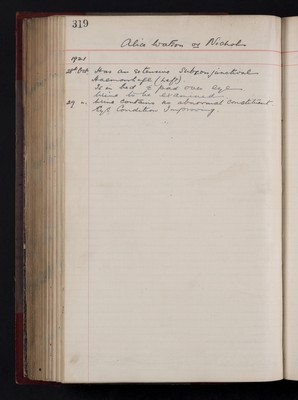 319
Alice Watson or Nichols
1921
Oct. Has an extensive Subconjunctival
Haemorrhage (Left).
Is in bed & pad over Eye
Urine to be examined
29 " Urine contains no abnormal constituent
Eye Condition Improving.